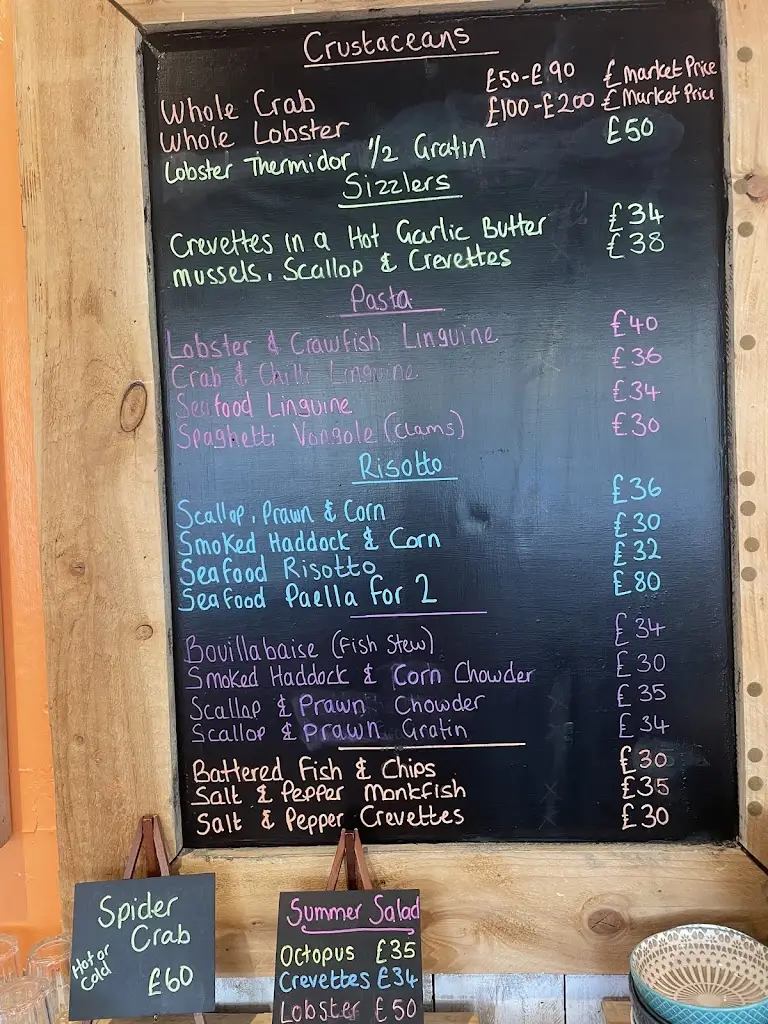 Crustaceans
Whole Crab £50-£90 £ market Price
Whole Lobster £100-£200 £ Market Price
Lobster Thermidor 1/2 Gratin £50
Sizzlers
Crevettes in a Hot Garlic Butter £34
mussels, Scallop & Crevettes £38
Pasta
Lobster & Crawfish Linguine £40
Crab & Chilli Linguine £36
Seafood Linguine £34
Spaghetti Vongole (clams) £30
Risotto
Scallop, Prawn & Corn £36
Smoked Haddock & Corn £30
Seafood Risotto £32
Seafood Paella for 2 £80
Bouillabaise (Fish Stew) £34
Smoked Haddock & Corn Chowder £30
Scallop & Prawn Chowder £35
Scallop & Prawn Gratin £34
Battered Fish & Chips £30
Salt & Pepper Monkfish £35
Salt & Pepper Crevettes £30
Spider
Crab
Hot or
Cold
£60
Summer Salad
Octopus £35
Crevettes £34
Lobster £50